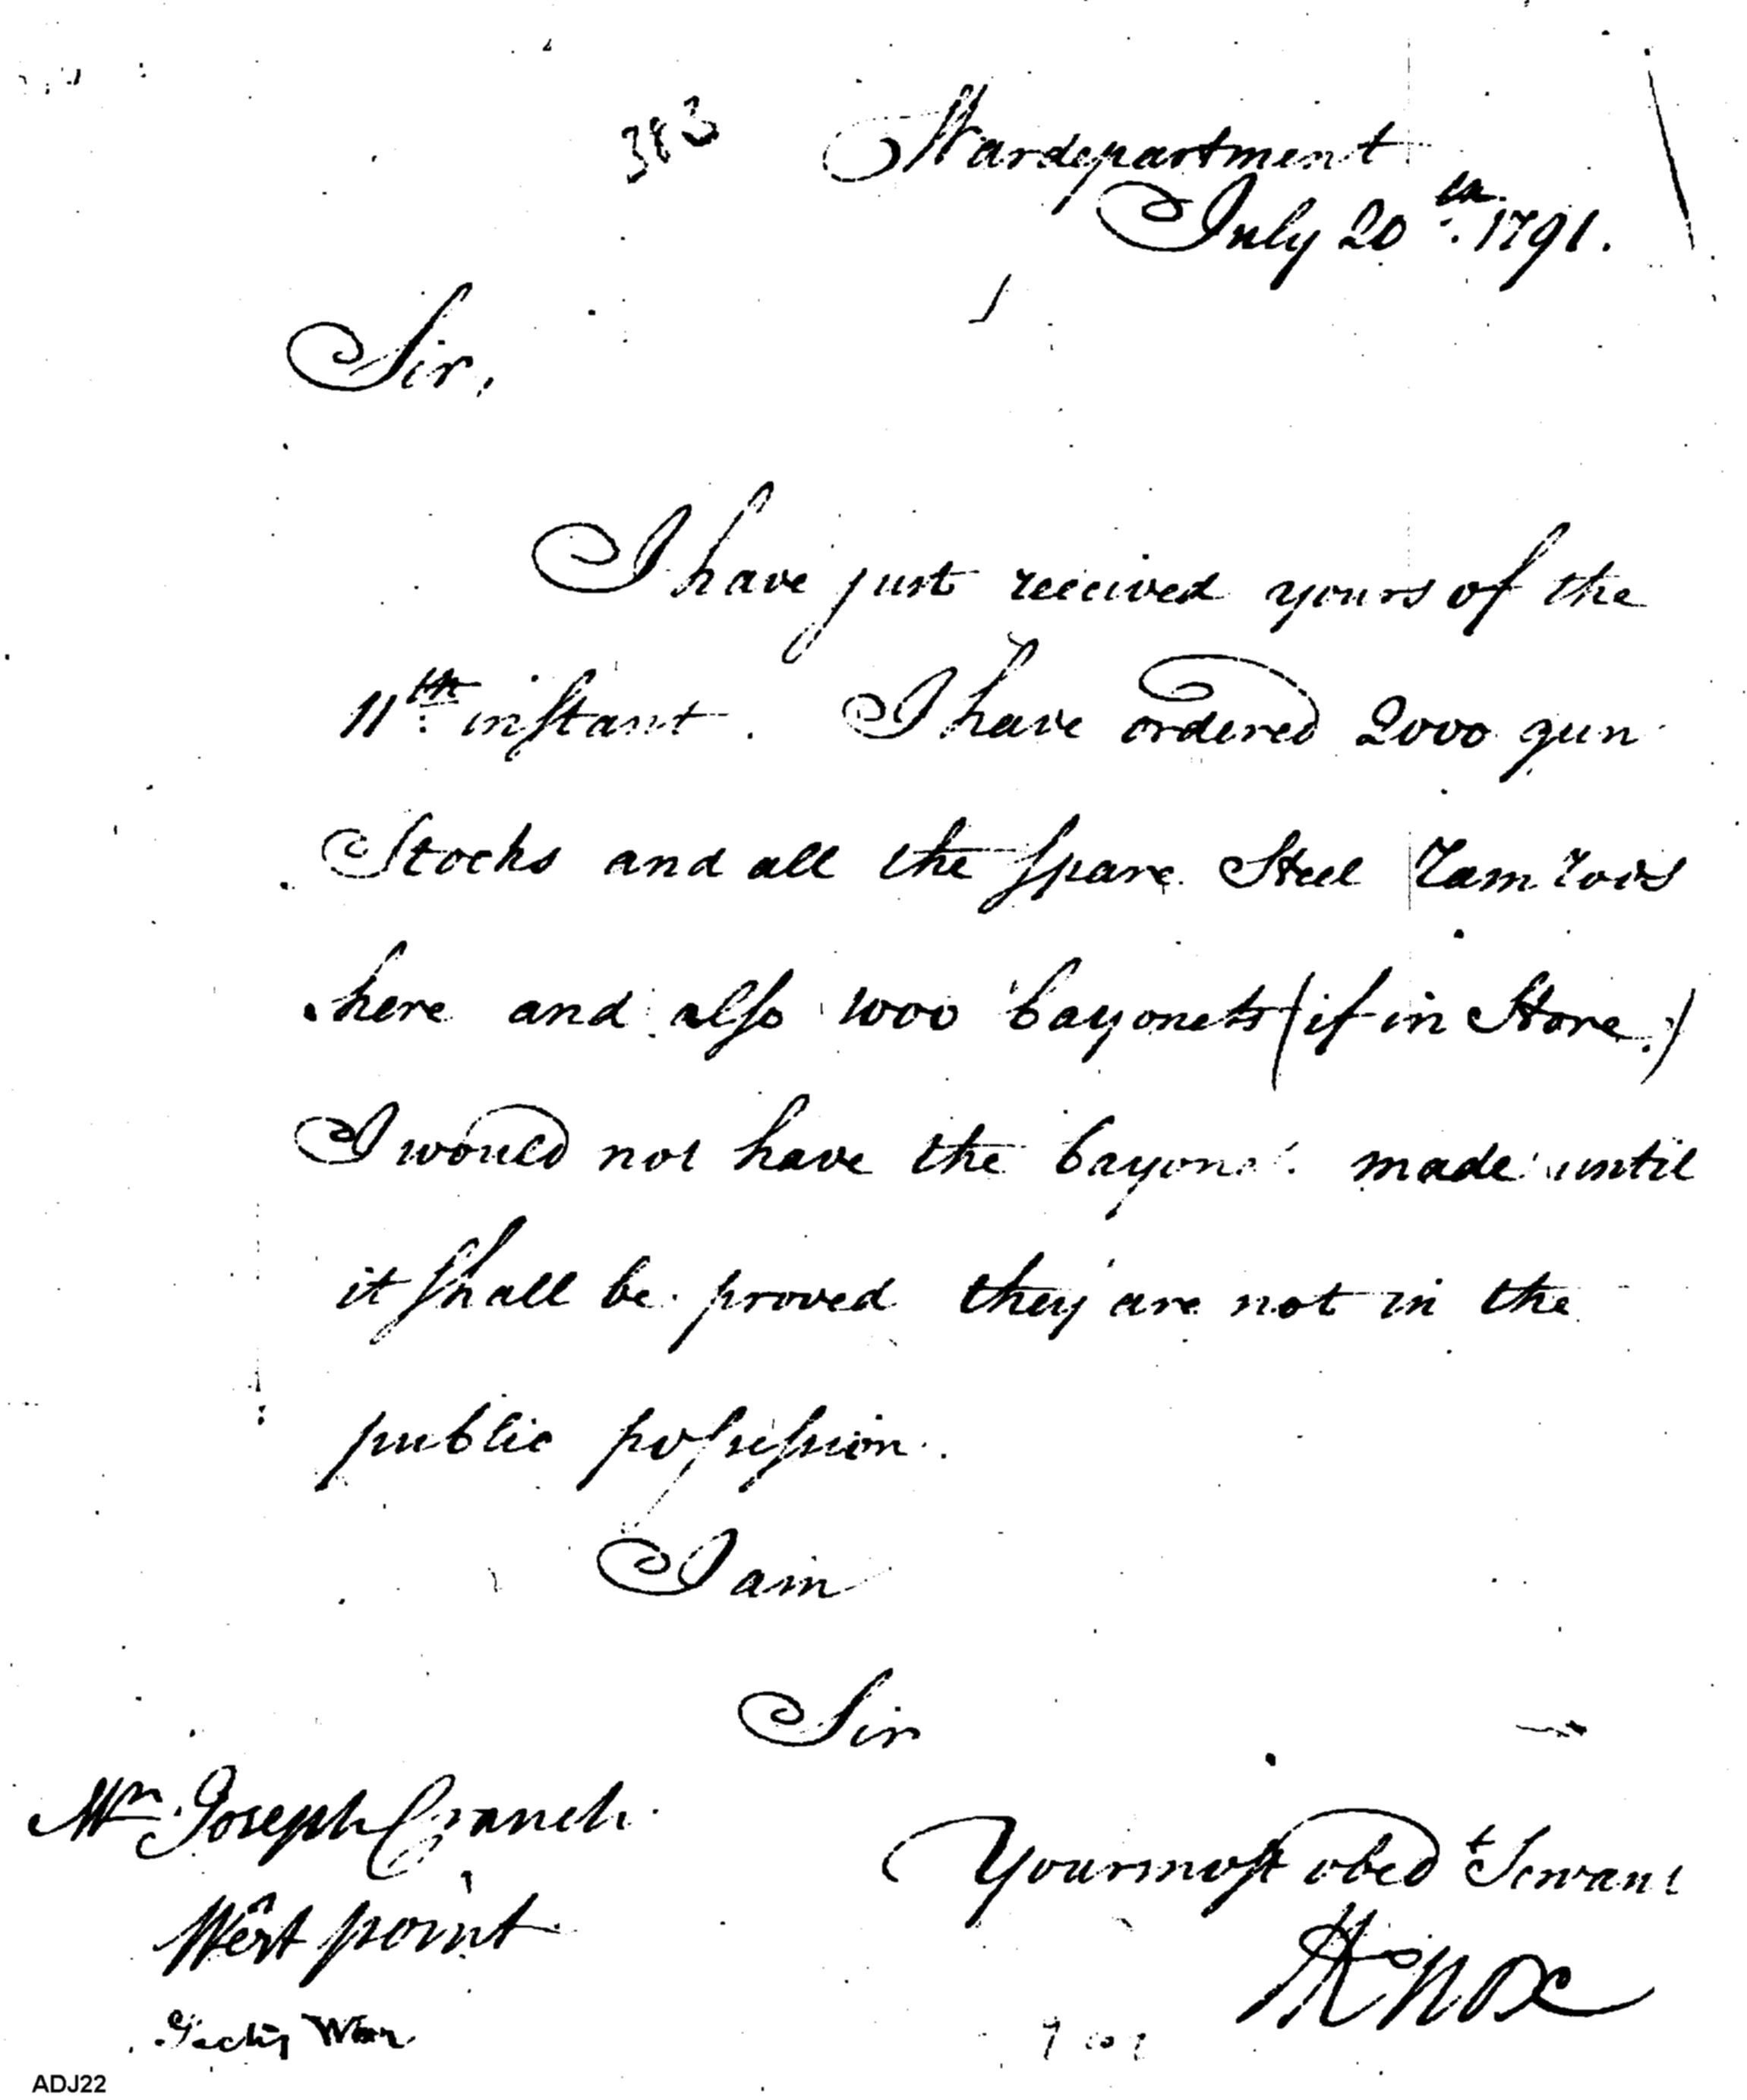 383
Wardepartment
July 20th. 1791.
Sir,
I have just received yours of the
11th inſtant. I have ordered 2000 gun
Stocks and all the ſpare Steel Ram rods
here and alſo 1000 bayonets (if in Store.)
I would not have the made until
it ſhall be proved they are not in the
public poſseſsion.
I am
Sir
Mr. Joseph Cranch
West point
Your moſt obedt Servant
HKnox
War
ADJ22